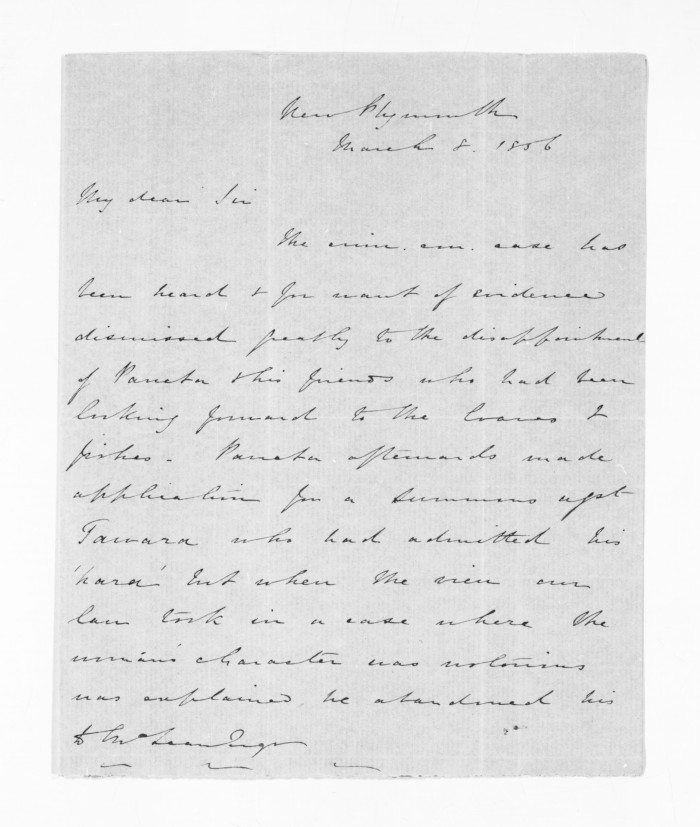 New Plymouth
March 8. 1856
My dear Sir
The crim. con. case has
been heard & for want of evidence
dismissed greatly to the disappointment
of Paneta & his friends who had been
looking forward to the loaves &
fishes - Paneta afterwards made
application for a summons agst
Tawara who had admitted his
'hara' but when the view our
law took in a case where the
woman's character was notorious
was explained he abandoned his
D McLean Esqr